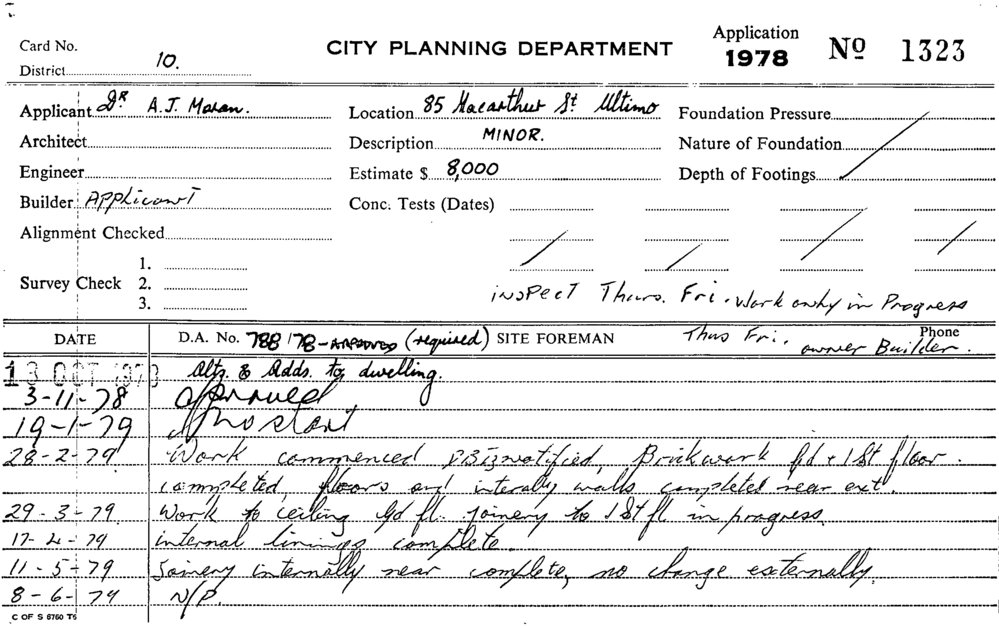 Card No. CITY PLANNING DEPARTMENT Application
1978 Nº 1323
District 10.
Applicant Dr A.J. Moran. Location 85 Macarthur St Ultimo Foundation Pressure
Architect Description MINOR. Nature of Foundation
Engineer Estimate $ 8,000 Depth of Footings
Builder Applicant Conc. Tests (Dates)
Alignment Checked
Survey Check 1.
2.
3.
inspect Thurs. Fri. Work only in Progress
DATE D.A. No. 788/78 - APPROVED (required) SITE FOREMAN Thus Fri. owner Builder. Phone
13 OCT 1978 Alts. & Adds. to dwelling.
3-11-78 approved
19-1-79 No start
28-2-79 Work commenced notified, Brickwork Gd + 1st floor.
completed, floors and walls completed near ext.
29-3-79 Work to ceiling Gd fl. joinery to 1st fl in progress.
17-4-79 internal linings complete.
11-5-79 Joinery internally near complete, no change externally.
8-6-79 N/P.
C OF S 8760 T6